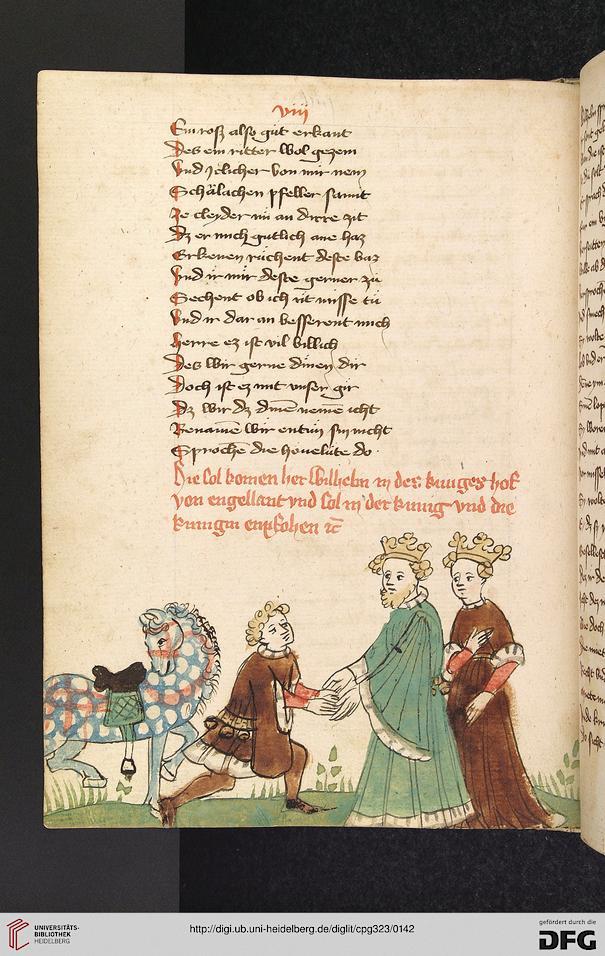 viij
Ein roß also gůt erkant
Des ein ritter wol gezem
Vnd jclicher von mir nem
Schälachen pfeller samit
Je cleyder nü an dirre zit
Dz er mich gutlich ane haz
Erkenen rüchent deste baz
Vnd ir mir deste gerner zü
Sechent ob ich üt misse tü
Vnd ir dar an besserent mich
Herre ez ist vil billich
Des wir gerne dinen dir
Doch ist ez mit vnser gir
Dz wir dz dinē nemē icht
Benamē wir entün sin nicht
Sprochē die houelüte do
Hie sol komen her Wilhelm in des kunges hof
von engellant vnd sol in der kunig vnd die
kunigin enpfohen ꝛc
UNIVERSITÄTS-
BIBLIOTHEK
HEIDELBERG
http://digi.ub.uni-heidelberg.de/diglit/cpg323/0142
gefördert durch die
DFG